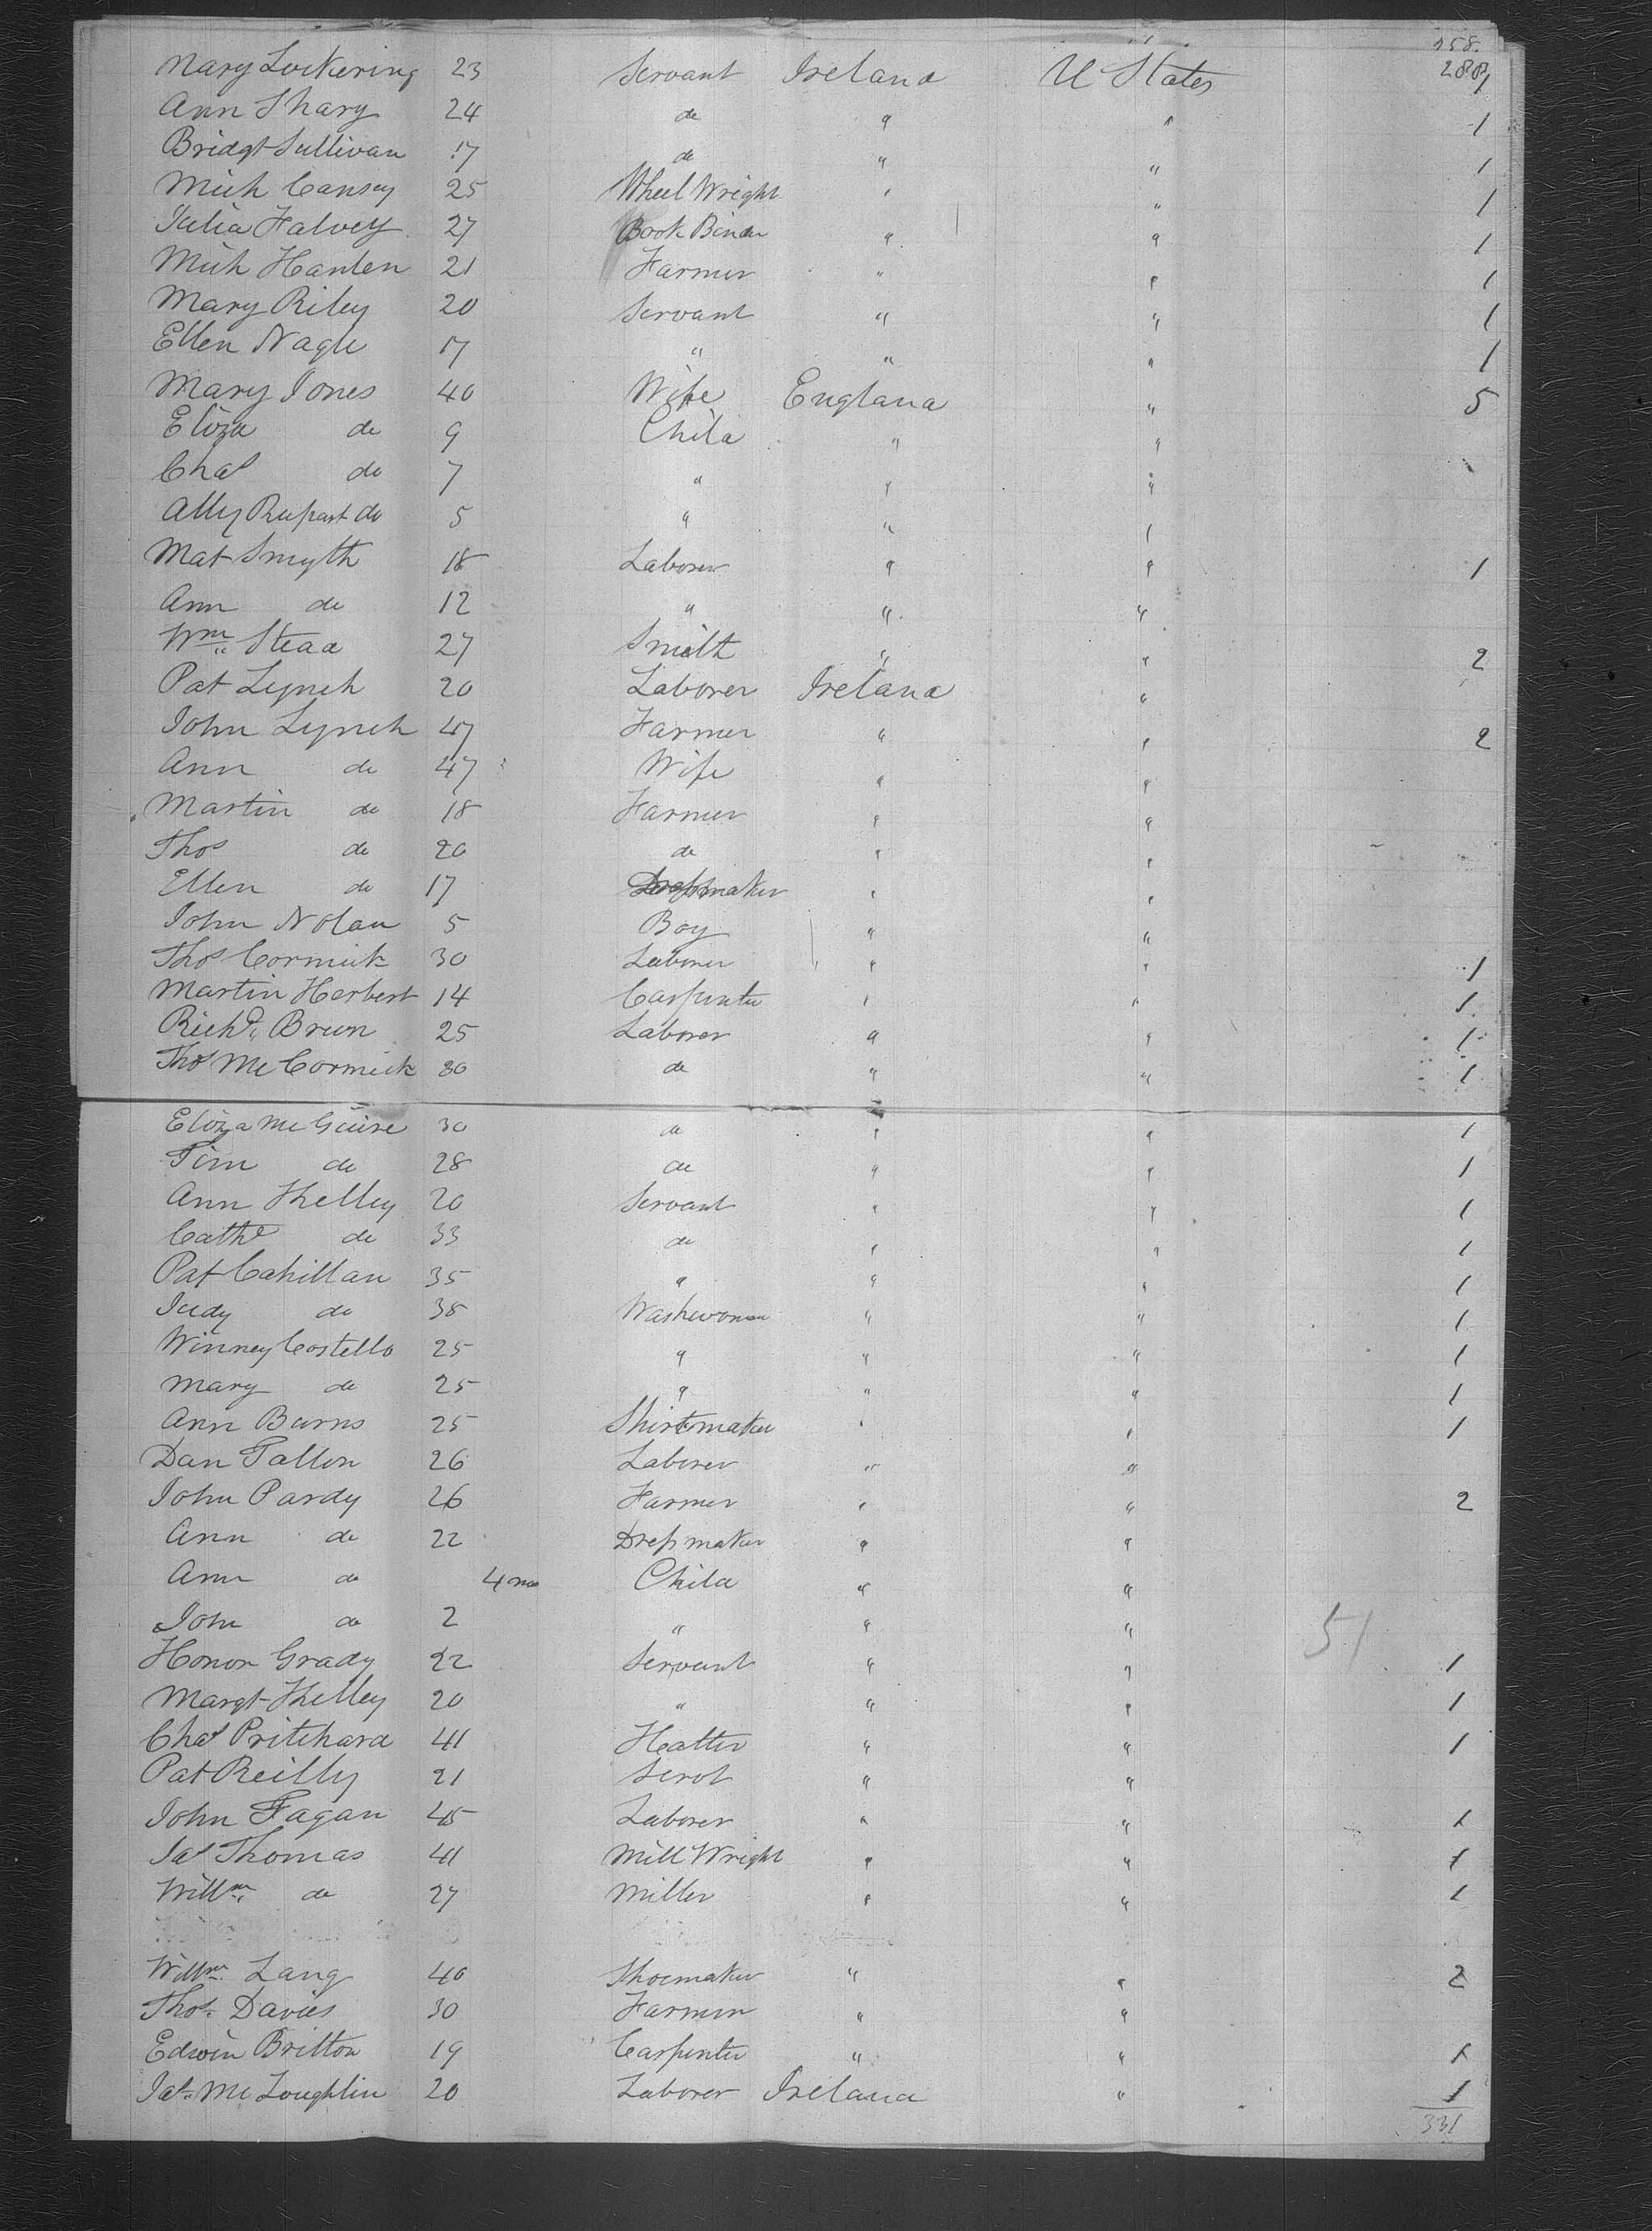 158.
288
Mary Lockering 23 Servant Ireland U States 1
Ann Shary 24 do " " 1
Bridgt Sullivan 17 do " " 1
Mich Cansey 25 Wheel Wright " " 1
Julia Falvey 27 Book Binder " " 1
Mich Hanlen 21 Farmer " " 1
Mary Riley 20 Servant " " 1
Ellen Nagle 17 " " " 1
Mary Jones 40 Wife England " 5
Eliza do 9 Child " "
Chas do 7 " " "
Ally Rupart do 5 " " "
Mat Smyth 18 Laborer " " 1
Ann do 12 " " "
Wm Stead 27 Smith " " 2
Pat Lynch 20 Laborer Ireland "
John Lynch 47 Farmer " " 2
Ann do 47 Wife " "
Martin do 18 Farmer " "
Thos do 20 do " "
Ellen do 17 Dressmaker " "
John Nolan 5 Boy " "
Thos Cormick 30 Laborer " " 1
Martin Herbert 14 Carpenter " " 1
Richd Breen 25 Laborer " " 1
Thos McCormick 30 do " " 1
Eliza McGuire 30 do " " 1
Tim do 28 do " " 1
Ann Shelley 20 Servant " " 1
Cathe do 33 do " " 1
Pat Cahillan 35 " " " 1
Judy do 38 Washwoman " " 1
Winney Costello 25 " " " 1
Mary do 25 " " " 1
Ann Burns 25 Shirtmaker " " 1
Dan Fallon 26 Laborer " "
John Pardy 26 Farmer " " 2
Ann do 22 Dressmaker " "
Ann do 4 mos Child " "
John do 2 " " "
51
Honor Grady 22 Servant " " 1
Margt Shelley 20 " " " 1
Chas Pritchard 41 Hatter " " 1
Pat Reilly 21 Servt " "
John Fagan 45 Laborer " " 1
Jas Thomas 41 Mill Wright " " 1
Willm do 27 Miller " " 1
Willm Lang 40 Shoemaker " " 2
Thos. Davies 30 Farmer " "
Edwin Britton 19 Carpenter " " 1
Jas. McLoughlin 20 Laborer Ireland " 1
331